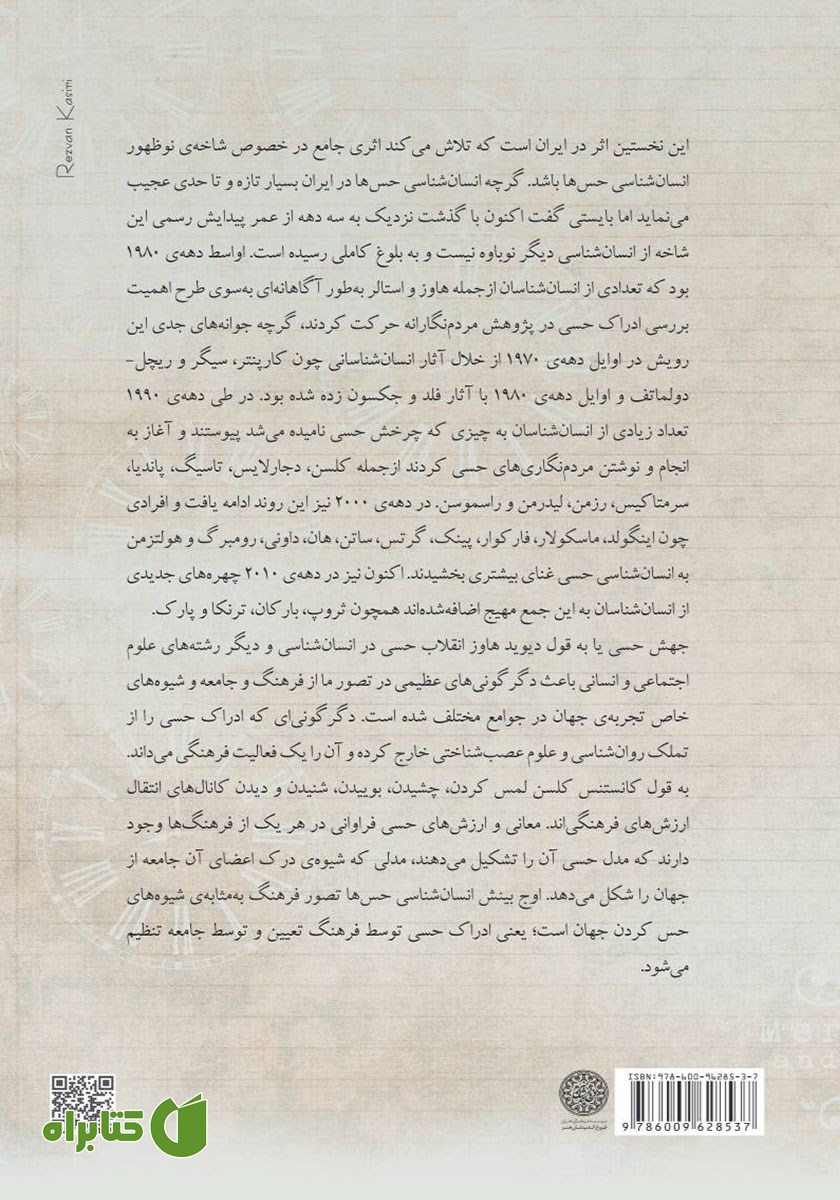 Rezvan Kasiri
این نخستین اثر در ایران است که تلاش می‌کند اثری جامع در خصوص شاخه‌ی نوظهور
انسان‌شناسی حس‌ها باشد. گرچه انسان‌شناسی حس‌ها در ایران بسیار تازه و تا حدی عجیب
می‌نماید اما بایستی گفت اکنون با گذشت نزدیک به سه دهه از عمر پیدایش رسمی این
شاخه از انسان‌شناسی دیگر نوباوه نیست و به بلوغ کاملی رسیده است. اواسط دهه‌ی ۱۹۸۰
بود که تعدادی از انسان‌شناسان ازجمله هاوز و استالر به‌طور آگاهانه‌ای به‌سوی طرح اهمیت
بررسی ادراک حسی در پژوهش مردم‌نگارانه حرکت کردند، گرچه جوانه‌های جدی این
رویش در اوایل دهه‌ی ۱۹۷۰ از خلال آثار انسان‌شناسانی چون کارپنتر، سیگر و ریچل-
دولماتف و اوایل دهه‌ی ۱۹۸۰ با آثار فلد و جکسون زده شده بود. در طی دهه‌ی ۱۹۹۰
تعداد زیادی از انسان‌شناسان به چیزی که چرخش حسی نامیده می‌شد پیوستند و آغاز به
انجام و نوشتن مردم‌نگاری‌های حسی کردند ازجمله کلسن، دجارلایس، تاسیگ، پاندیا،
سرمتاکیس، رزمن، لیدرمن و راسموسن. در دهه‌ی ۲۰۰۰ نیز این روند ادامه یافت و افرادی
چون اینگولد، ماسکولار، فارکوار، پینک، گرتس، ساتن، هان، داونی، رومبرگ و هولتزمن
به انسان‌شناسی حسی غنای بیشتری بخشیدند. اکنون نیز در دهه‌ی ۲۰۱۰ چهره‌های جدیدی
از انسان‌شناسان به این جمع مهیج اضافه‌شده‌اند همچون ثروپ، بارکان، ترنکا و پارک.
جهش حسی یا به قول دیوید هاوز انقلاب حسی در انسان‌شناسی و دیگر رشته‌های علوم
اجتماعی و انسانی باعث دگرگونی‌های عظیمی در تصور ما از فرهنگ و جامعه و شیوه‌های
خاص تجربه‌ی جهان در جوامع مختلف شده است. دگرگونی‌ای که ادراک حسی را از
تملک روان‌شناسی و علوم عصب‌شناختی خارج کرده و آن را یک فعالیت فرهنگی می‌داند.
به قول کانستنس کلسن لمس کردن، چشیدن، بوییدن، شنیدن و دیدن کانال‌های انتقال
ارزش‌های فرهنگی‌اند. معانی و ارزش‌های حسی فراوانی در هر یک از فرهنگ‌ها وجود
دارند که مدل حسی آن را تشکیل می‌دهند، مدلی که شیوه‌ی درک اعضای آن جامعه از
جهان را شکل می‌دهد. اوج بینش انسان‌شناسی حس‌ها تصور فرهنگ به‌مثابه‌ی شیوه‌های
حس کردن جهان است؛ یعنی ادراک حسی توسط فرهنگ تعیین و توسط جامعه تنظیم
می‌شود.
ISBN: 978-600-96285-3-7
9 786009 628537
کتابراه